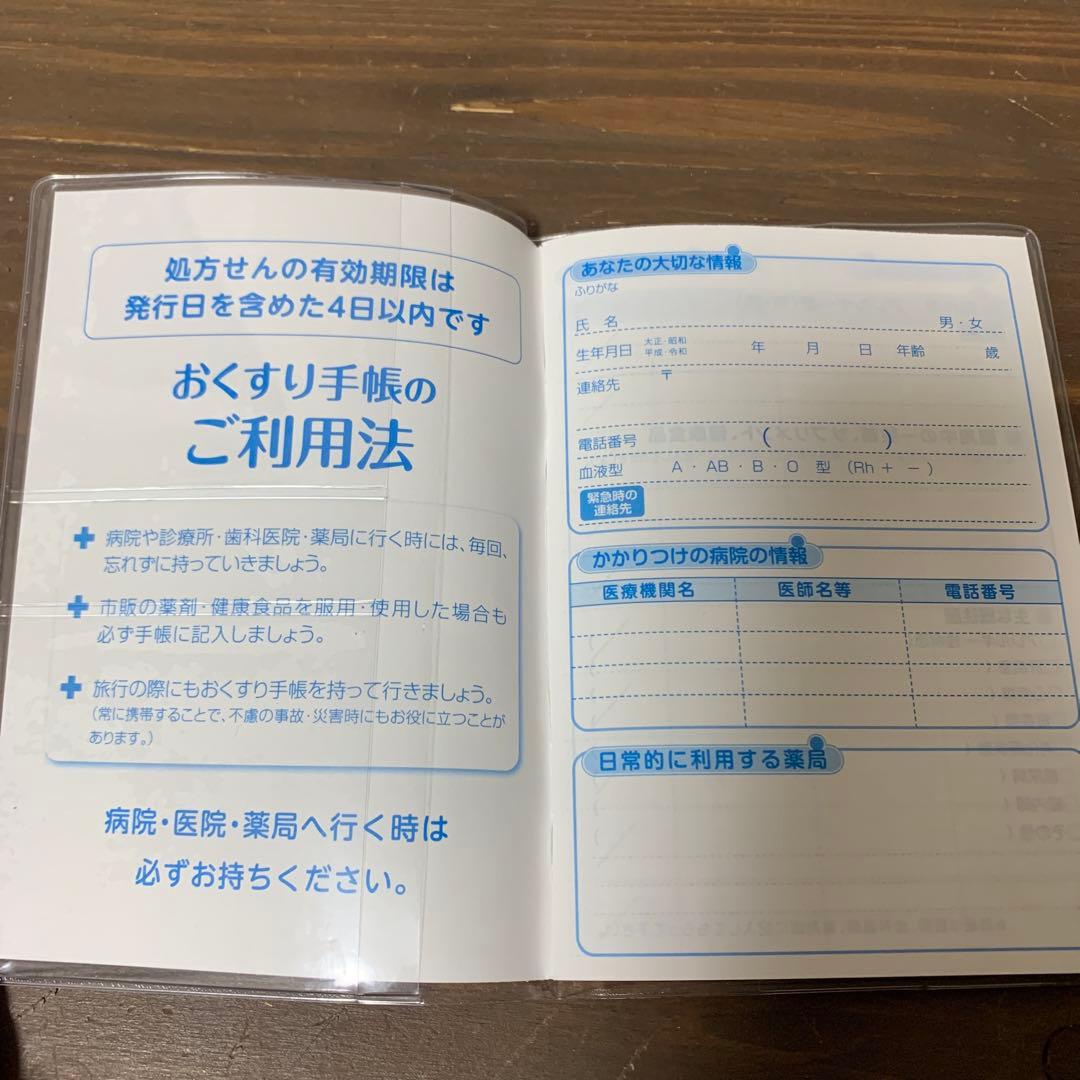 処方せんの有効期限は
発行日を含めた4日以内です
おくすり手帳の
ご利用法
病院や診療所・歯科医院・薬局に行く時には、毎回、
忘れずに持っていきましょう。
市販の薬剤・健康食品を服用・使用した場合も
必ず手帳に記入しましょう。
旅行の際にもおくすり手帳を持って行きましょう。
(常に携帯することで、不慮の事故・災害時にもお役に立つことが
あります。)
病院・医院・薬局へ行く時は
必ずお持ちください。
あなたの大切な情報
ふりがな
氏 名 男・女
生年月日 大正・昭和 平成・令和 年 月 日 年齢 歳
連絡先 〒
電話番号 ( )
血液型 A・AB・B・O 型 (Rh + − )
緊急時の
連絡先
かかりつけの病院の情報
医療機関名 医師名等 電話番号
日常的に利用する薬局